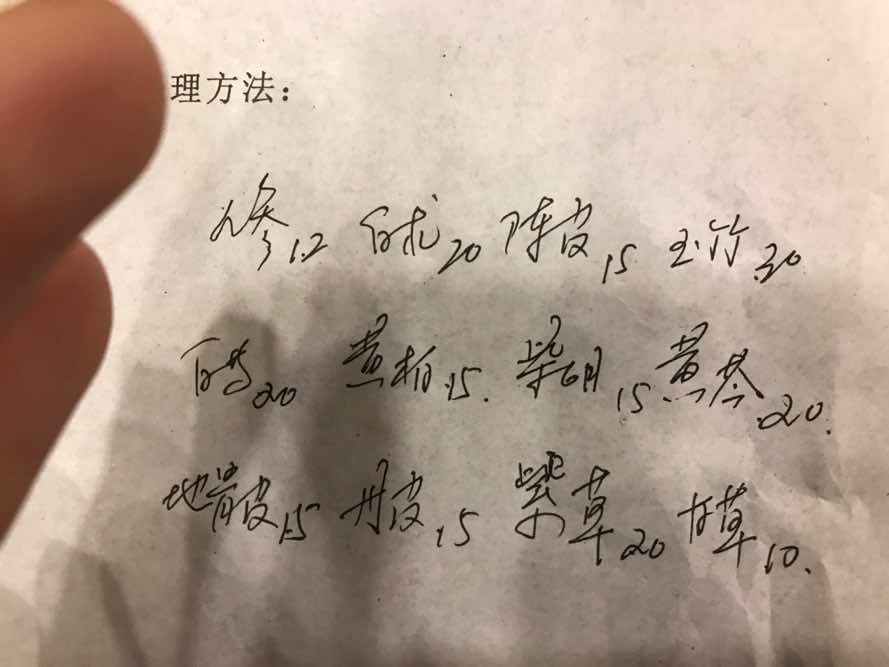 理方法：
人参12 白术20 陈皮15 玉竹30
白芍20 黄柏15. 柴胡15 黄芩20.
地骨皮15 丹皮15 紫草20 甘草10.